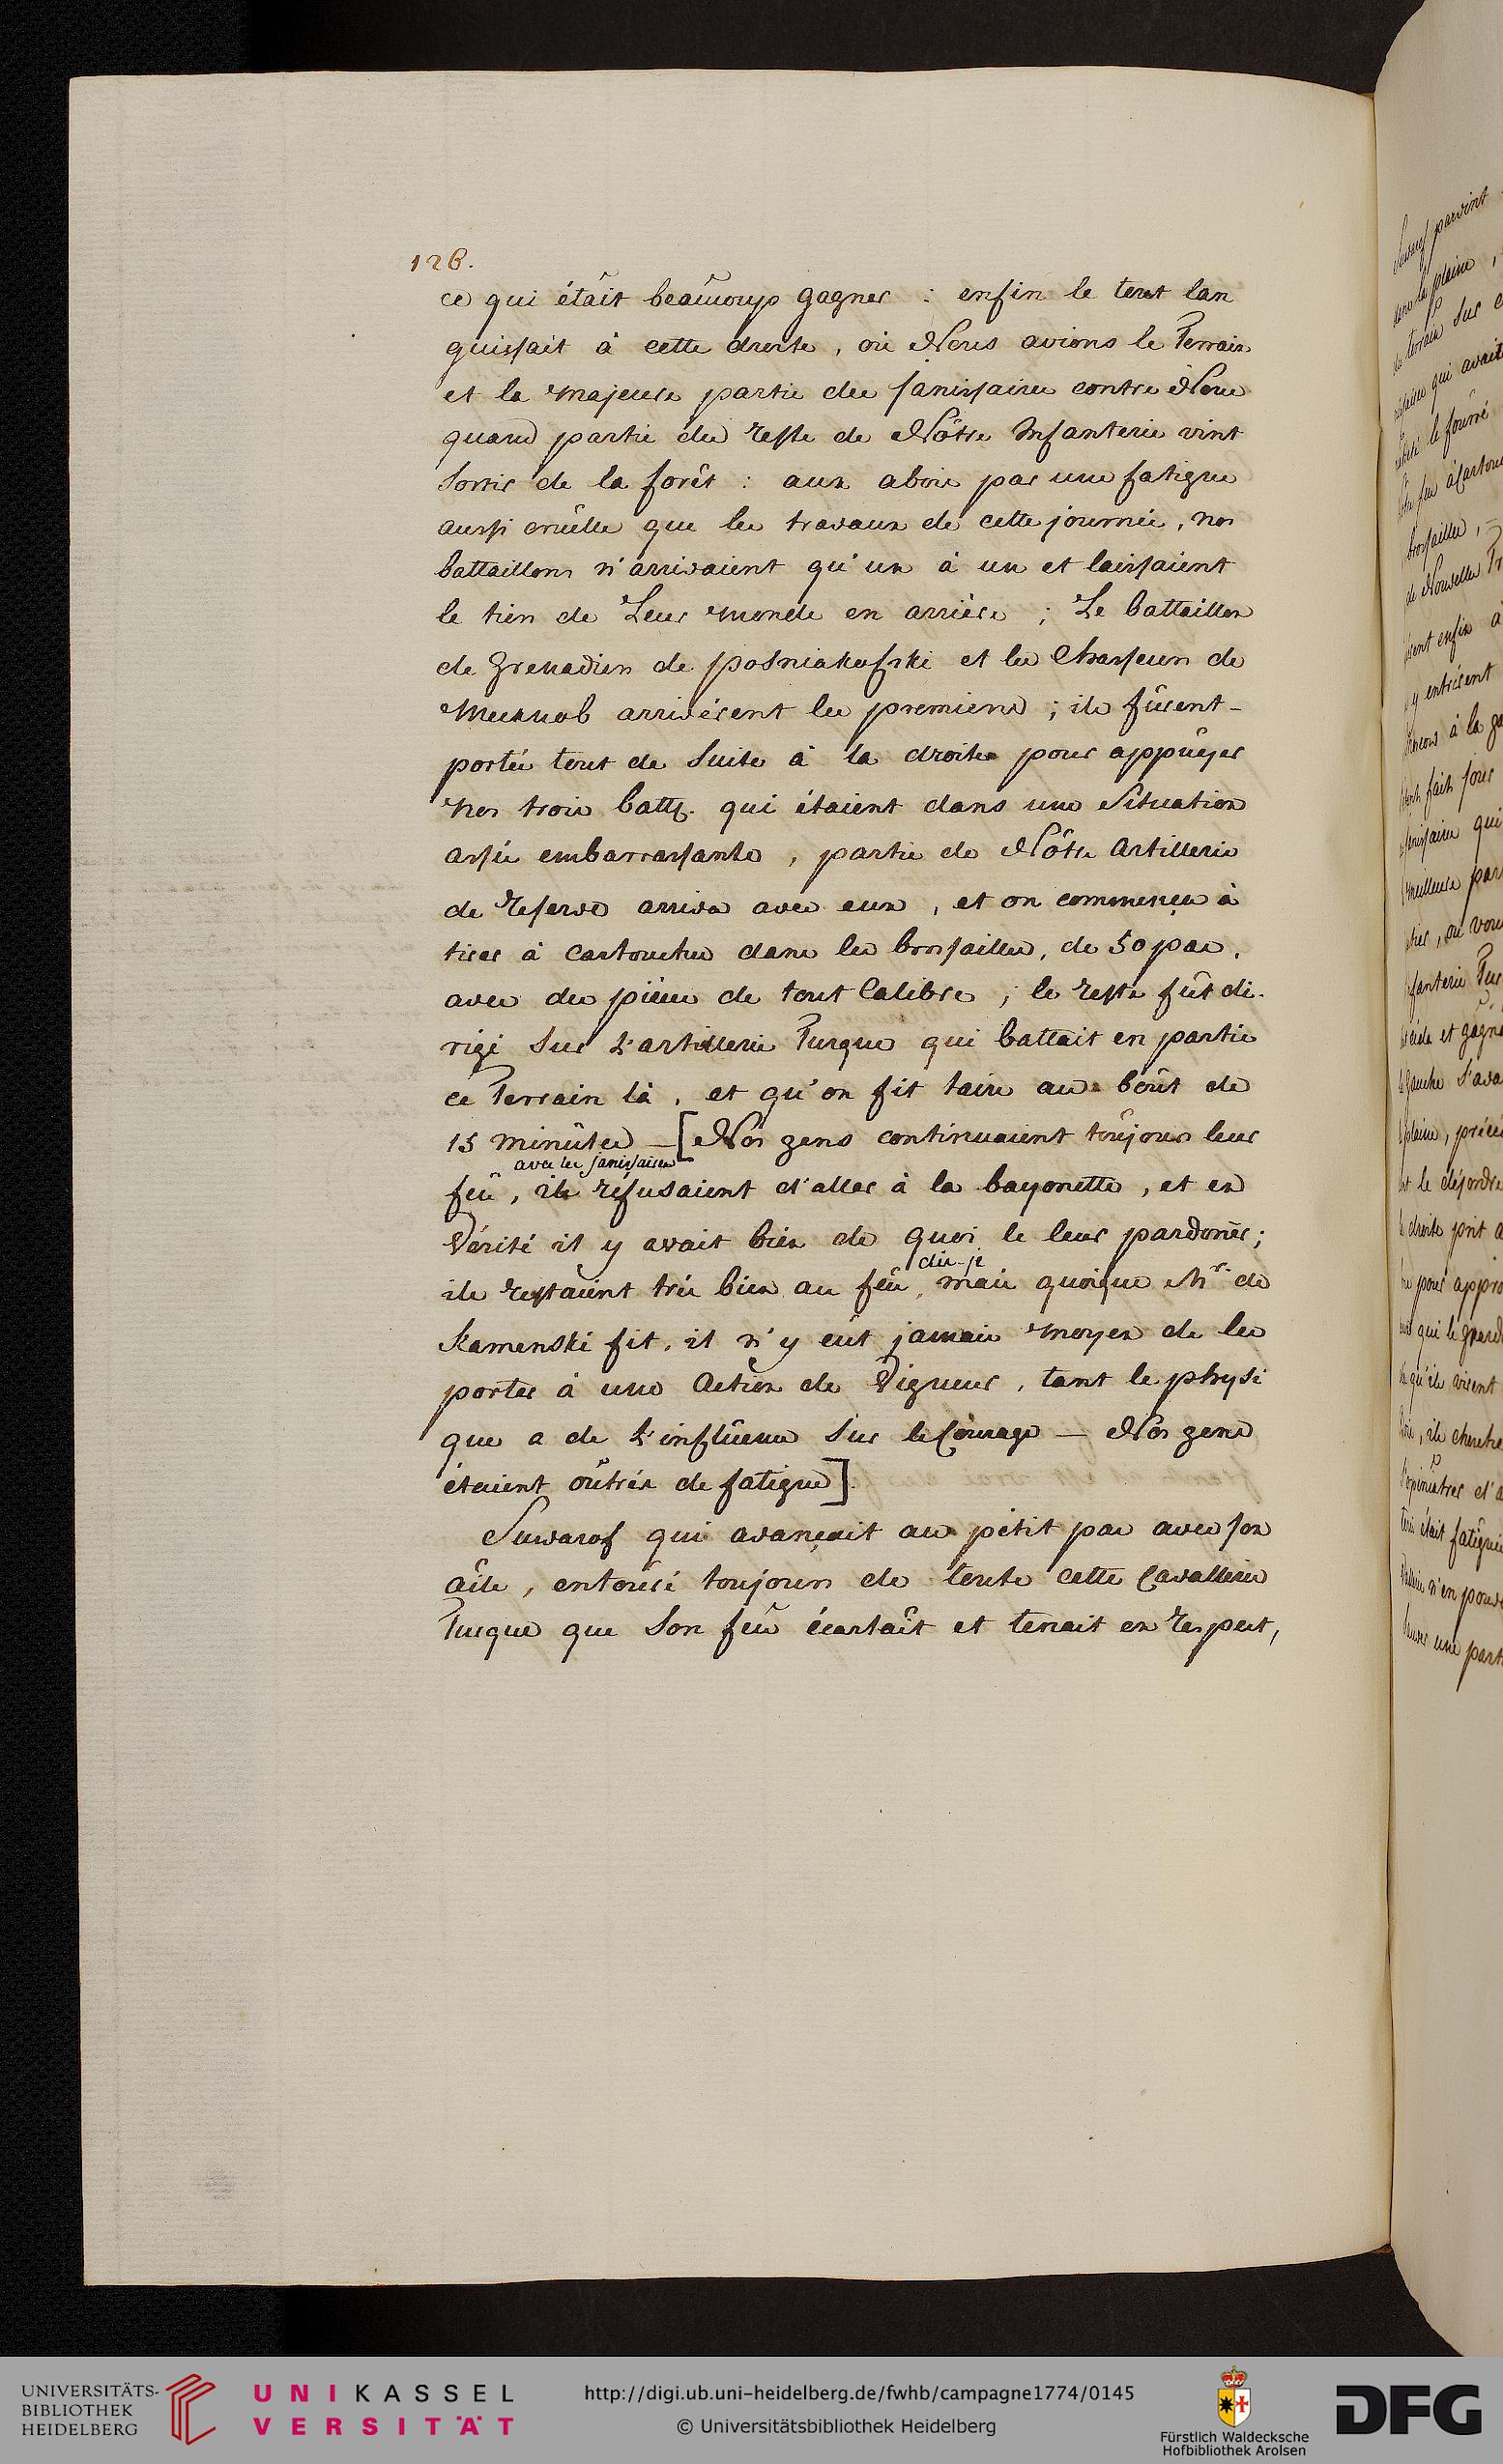 126.
ce qui était beaûcoup gagner : enfin le tout lan
guissait à cette droite, où Nous avions le Terrain
et la majeure partie des janissaires contre Nous
quand partie du reste de Nôtre Infanterie vint
sortir de la forêt : aux abois par une fatigue
aussi cruelle que les travaux de cette journée, nos
battaillons n'arrivaient qu'un à un et laissaient
le tiers de Leur monde en arrière ; Le battaillon
de grenadiers de posniakofski et les Chasseurs de
Mecknob arrivérent les premiers ; ils fûrent
portés tout de suite à la droite pour appûyer
nos trois batt. qui étaient dans une Situation
assés embarrassante, partie de Nôtre artillerie
de reserve arriva avec eux, et on commença à
tirer à cartouches dans les brossailles, de 50 pas,
avec des pièces de tout Calibre ; le reste fût di-
rigé sur L'artillerie Turque qui battait en partie
ce Terrain là, et qu'on fit taire au bout de
15 minûtes — [Nos gens continuaient toûjours leur
avec les janissaires
feû, ils réfusaient d'aller à la bayonette, et en
Vérité il y avait bien de quoi le leur pardonèr ;
dis-je
ils restaient très bien au feû, mais quoique Mr. de
Kamenski fit, il n'y eût jamais moyen de les
porter à une Action de Vigueur, tant le physi
que a de L'influence sur le Coûrage — Nos gens
étaient oûtrés de fatigue].
Suwarof qui avançait au pétit pas avec son
aîle, entouré toujours de toute cette Cavallerie
Turque que Son feû écartait et tenait en respect,
Suwarof parvint
dans la plaine,
du terrain sur
qui avait
le fourré
brossailles,
de Nouvelles
enfin à
y entrérent
à la
fait
qui
meilleure
et gagna
gauche s'ava
plaine,
le désordre
droite prit
pour appro
qui le
qu'ils virent
ils cherche
opiniâtrer
était fatigué
n'en
une parti
UNIVERSITÄTS-
BIBLIOTHEK
HEIDELBERG
UNIKASSEL
VERSITÄT
http://digi.ub.uni-heidelberg.de/fwhb/campagne1774/0145
© Universitätsbibliothek Heidelberg
Fürstlich Waldecksche
Hofbibliothek Arolsen
DFG